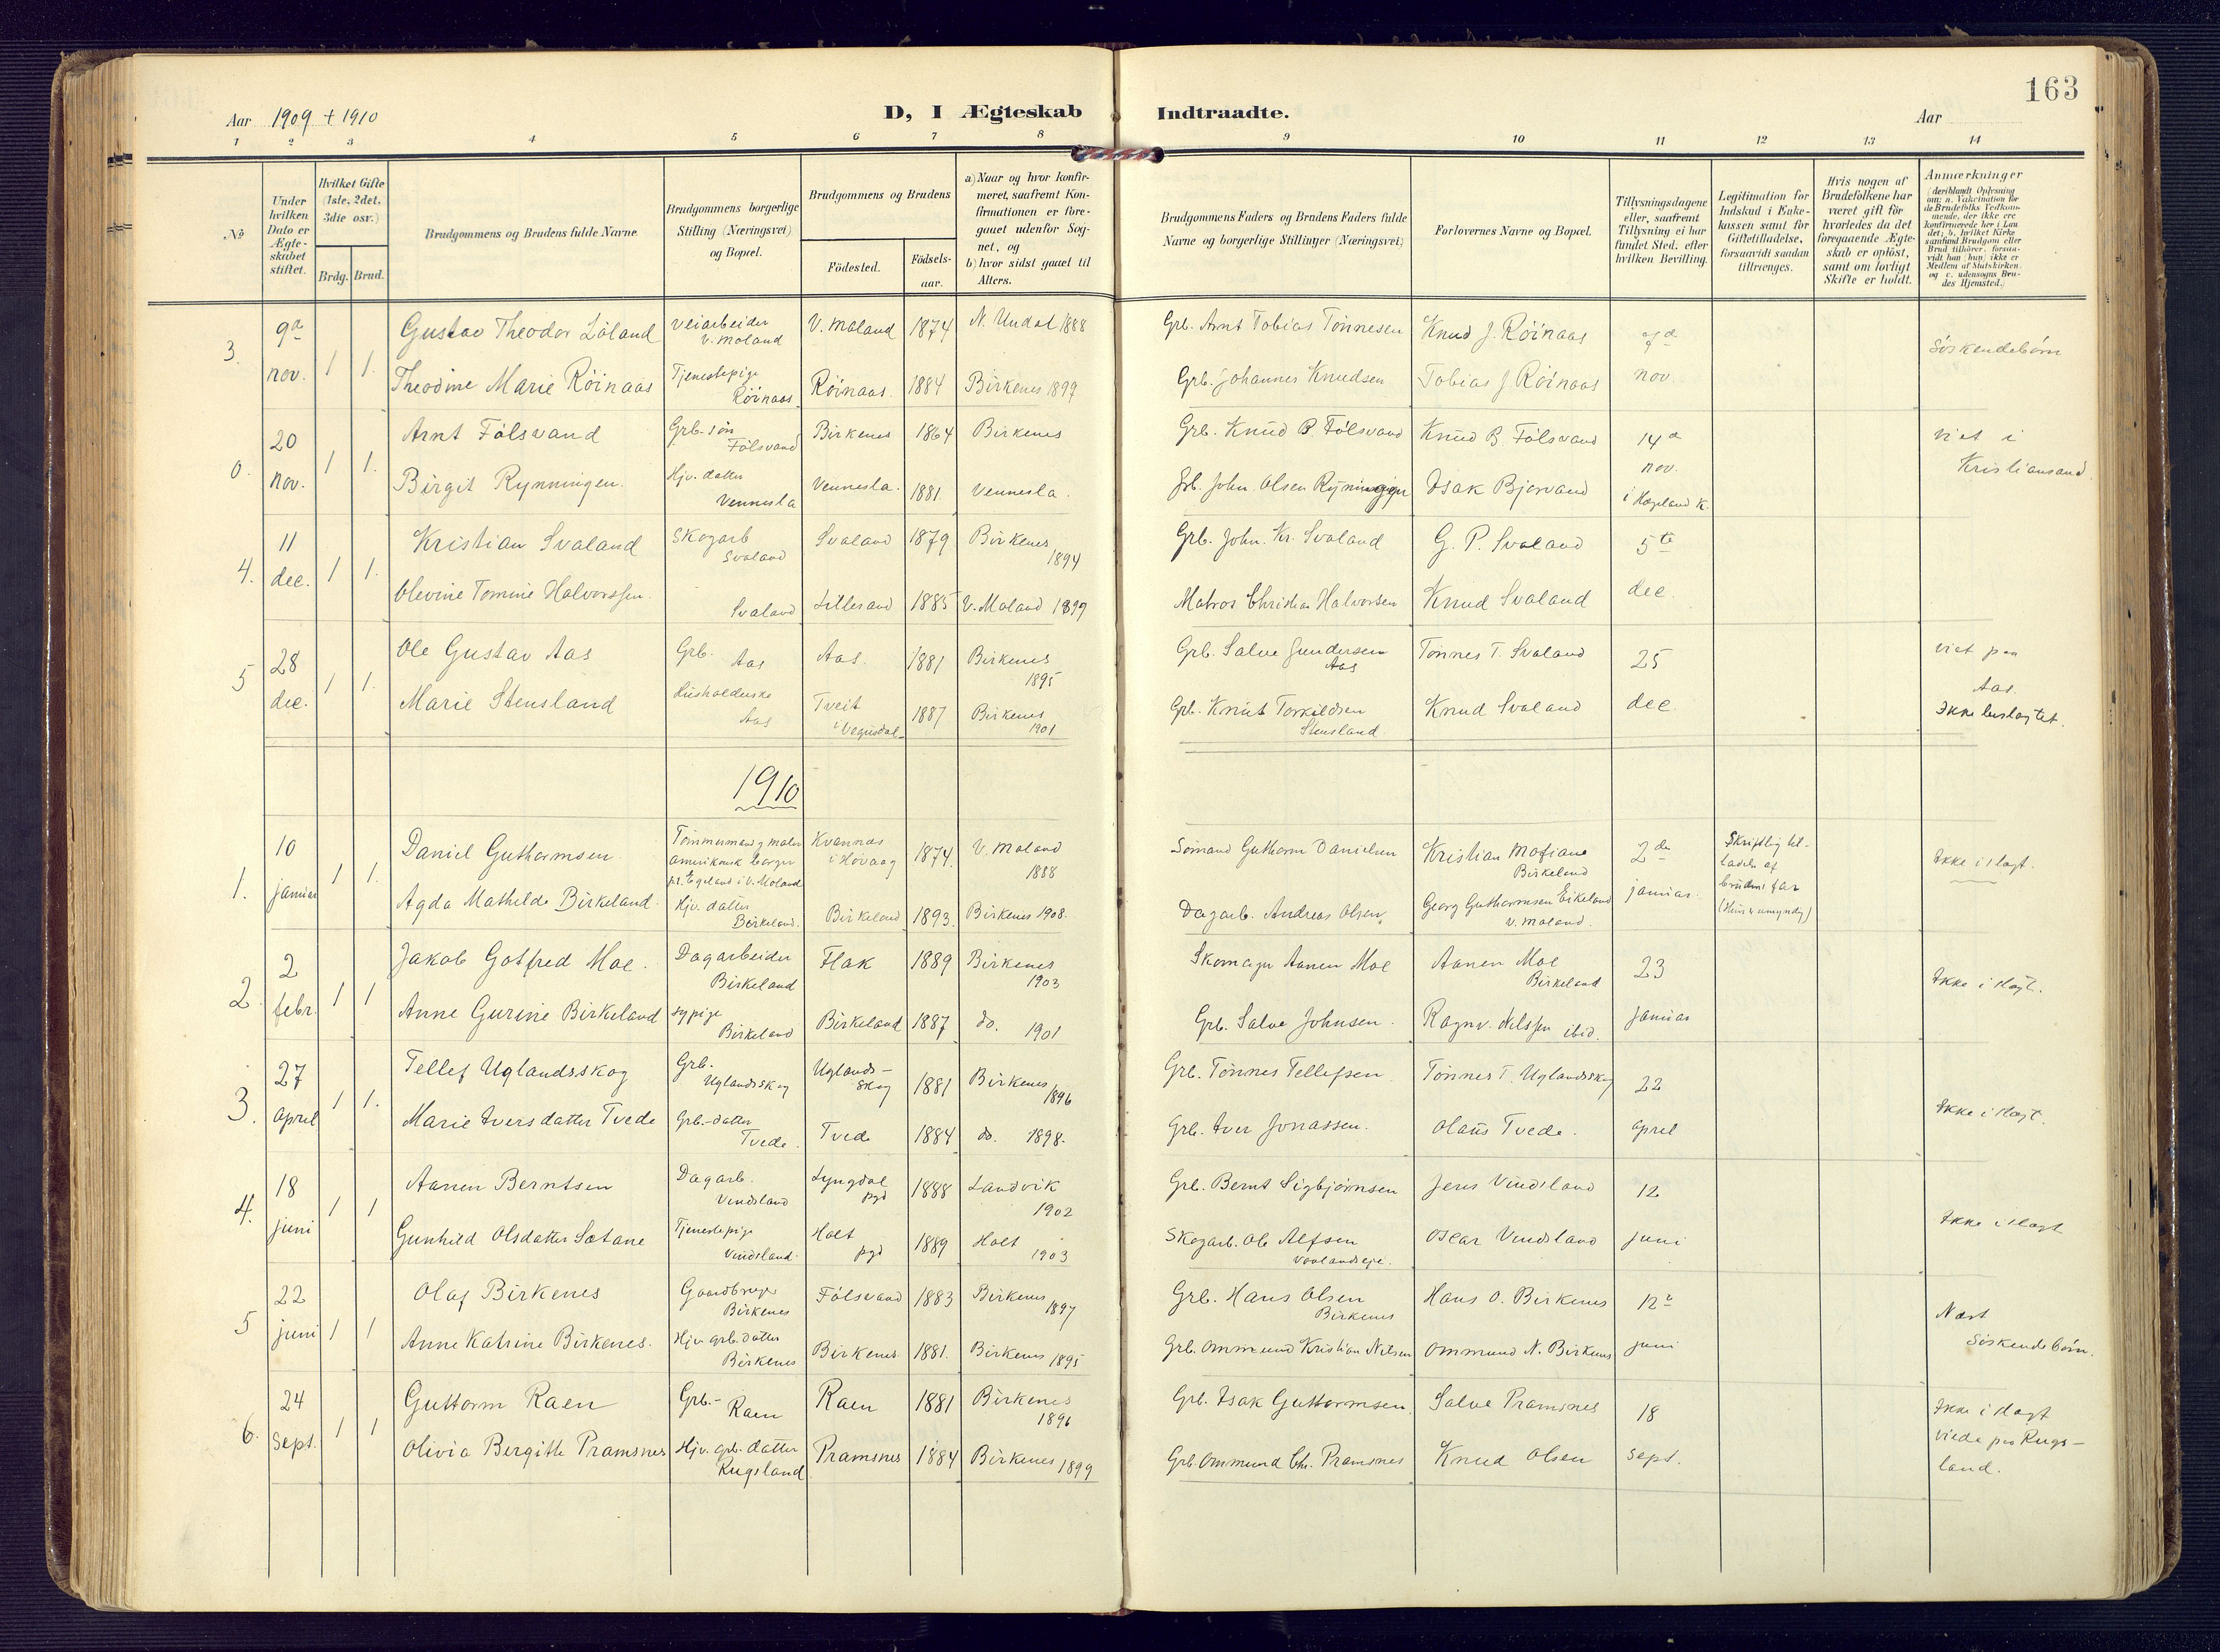 163
Aar 1909 + 1910
D, I Ægteskab Indtraadte.
Aar
1 2 3 4 5 6 7 8 9 10 11 12 13 14
№
Under hvilken Dato er Ægteskabet stiftet.
Hvilket Gifte (1ste, 2det, 3die osv.)
Brdg. Brud.
Brudgommens og Brudens fulde Navne.
Brudgommens borgerlige Stilling (Næringsvei) og Bopæl.
Brudgommens og Brudens
Födested. Födselsaar.
a) Naar og hvor konfirmeret, saafremt Konfirmationen er foregaaet udenfor Sognet, og
b) hvor sidst gaaet til Alters.
Brudgommens Faders og Brudens Faders fulde Navne og borgerlige Stillinger (Næringsvei)
Forlovernes Navne og Bopæl.
Tillysningsdagene eller, saafremt Tillysning ei har fundet Sted, efter hvilken Bevilling.
Legitimation for Indskud i Enkekassen samt for Giftetilladelse, forsaavidt saadan tiltrænges.
Hvis nogen af Brudefolkene har været gift för hvorledes da det foregaaende Ægteskab er oplöst, samt om lovligt Skifte er holdt.
Anmærkninger
(deriblandt Oplysning om: a. Vakcination for de Brudefolks Vedkommende, der ikke ere konfirmerede her i Landet; b. hvilket Kirkesamfund Brudgom eller Brud tilhörer, forsaavidt han (hun) ikke er Medlem af Statskirken, og c. udensogns Brudes Hjemsted.)
3. 9de nov. 1 1.
Gustav Theodor Löland Veiarbeider V. Moland V. Moland 1874 N. Undal 1888 Grb. Arnt Tobias Tönnesen Knud J. Röinaas
Theodine Marie Röinaas Tjenestepige Röinaas Röinaas. 1884 Birkenes 1899 Grb. Johannes Knudsen Tobias J. Röinaas nov. Söskendebörn
0. 20 nov. 1 1.
Arnt Fölsvand Grb.-sön Fölsvand Birkenes 1864 Birkenes Grb. Knud B. Fölsvand Knud B. Fölsvand 14d nov.
Birgit Rynningen. Hjv. datter Vennesla Vennesla. 1881. Vennesla. John Olsen Isak Bjorvand i Hægeland K. viet i Kristiansand
4. 11 dec. 1 1.
Kristian Svaland Skogarb Svaland Svaland 1879 Birkenes 1894 Grb. John. Kr. Svaland G. P. Svaland 5te
Olevine Tomine Halvorssen. Svaland Lillesand 1885 V. Moland 1899 Matros Christian Halvorsen Knud Svaland dec.
5 28 dec. 1 1.
Ole Gustav Aas Grb. Aas Aas. 1881 Birkenes 1895 Grb. Salve Gundersen Aas Tönnes T. Svaland 25
Marie Stensland Husholderske Aas Tveit i Vegusdal 1887 Birkenes 1901 Grb. Knut Torkildsen Stensland Knud Svaland dec. viet paa Aas. Ikke beslægtet.
1910
1. 10 januar 1 1.
Daniel Guthormsen Tömmermand og maler amerikansk borger Kvannes i Hövaag 1874. V. Moland 1888 Sömand Guthorm Danielsen Kristian Birkeland 2den
Agda Mathilde Birkeland. Hjv. datter Birkeland. Birkeland 1893. Birkenes 1908. Dagarb. Andreas Olsen Georg Guthormsen Eikeland V. Moland. januar. Skriftlig tilladelse af brudens far (Hun er umyndig) Ikke i slægt.
2. 2 febr. 1 1
Jakob Gotfred Moe. Dagarbeider Birkeland Flak 1889 Birkenes 1903 Skomager Aanen Moe Aanen Moe Birkeland 23
Anne Gurine Birkeland sypige Birkeland Birkeland 1887 do. 1901 Grb. Salve Johnsen. Ragnv. Nilssen ibid. januar Ikke i slægt.
3. 27 April 1 1.
Tellef Uglandsskog Grb. Uglandsskog Uglandsskog 1881 Birkenes 1896 Grb. Tönnes Tellefsen Tönnes T. Uglandsskog 22
Marie Iversdatter Tvede Grb.-datter Tvede. Tvede 1884 do. 1898. Grb. Iver Jonassen. Olaus Tvede. April Ikke i slægt.
4. 18 juni 1 1
Aanen Berntsen Dagarb. Vindsland Lyngdal pgd 1888 Landvik 1902 Grb. Bernt Sigbjörnsen Jens Vindsland 12
Gunhild Olsdatter Sætane Tjenestepige Vindsland. Holt pgd 1889 Holt 1903 Skogarb. Ole Alfsen Oscar Vindsland juni Ikke i slægt
5 22 juni 1 1
Olaf Birkenes Gaardbruger Birkenes Fölsvand 1883 Birkenes 1897 Grb. Hans Olsen Birkenes Hans O. Birkenes 12te
Anne Katrine Birkenes. Hjv. grb. datter Birkenes Birkenes 1881. Birkenes 1895 Grb. Ommund Kristian Nilsen Ommund N. Birkenes juni Næst Söskendebörn.
6. 24 Sept. 1 1
Guttorm Raen Grb.- Raen Raen 1881 Birkenes 1896 Grb. Isak Guttormsen. Salve Pramsnes 18
Olivia Bergitte Pramsnes Hjv. grb. datter Rugsland Pramsnes 1884 Birkenes 1899 Grb. Ommund Chr. Pramsnes Knud Olsen Sept. Ikke i slægt viede paa Rugsland.